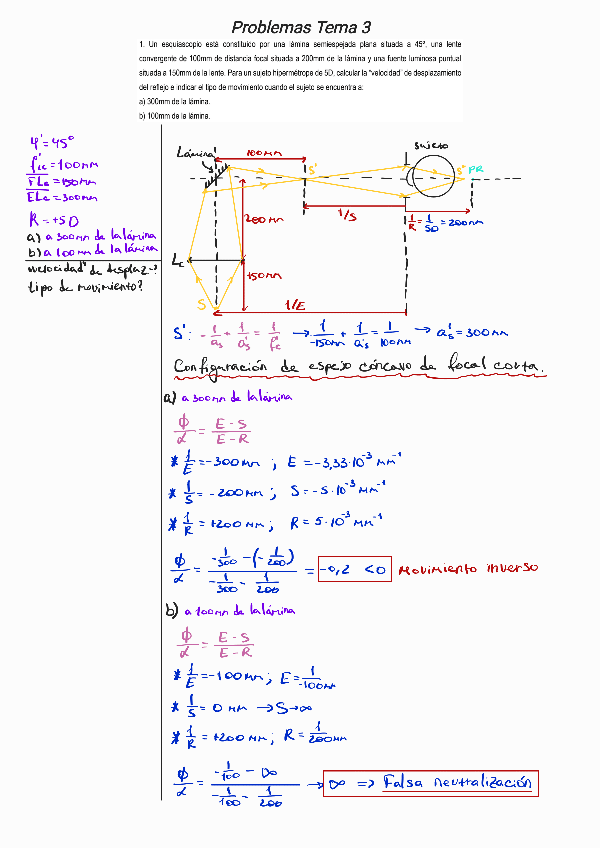 Problemas Tema 3
1. Un esquiascopio está constituido por una lámina semiespejada plana situada a 45º, una lente
convergente de 100mm de distancia focal situada a 200mm de la lámina y una fuente luminosa puntual
situada a 150mm de la lente. Para un sujeto hipermétrope de 5D, calcular la "velocidad" de desplazamiento
del reflejo e indicar el tipo de movimiento cuando el sujeto se encuentra a:
a) 300mm de la lámina.
b) 100mm de la lámina.
φ' = 45º
f'Lc = 100mm
FLc = 150mm
ELc = 300mm
R = +5D
a) a 300mm de la lámina
b) a 100mm de la lámina
¿velocidad de desplaz→?
tipo de movimiento?
Lámina
100mm
S'
Sujeto
S'' PR
200mm
1/S
1/R = 1/5D = 200mm
Lc
150mm
S
1/E
S': -1/as + 1/a's = 1/f'c → 1/-150mm + 1/a's = 1/100mm → a's = 300mm
Configuración de espejo cóncavo de focal corta.
a) a 300mm de la lámina
ϕ/α = E-S/E-R
* 1/E = -300mm ; E = -3,33·10⁻³ mm⁻¹
* 1/S = -200mm ; S = -5·10⁻³ mm⁻¹
* 1/R = +200mm ; R = 5·10⁻³ mm⁻¹
ϕ/α = -1/300 - (-1/200) / -1/300 - 1/200 = -0,2 < 0 Movimiento inverso
b) a 100mm de la lámina
ϕ/α = E-S/E-R
* 1/E = -100mm ; E = 1/-100mm
* 1/S = 0mm → S→∞
* 1/R = +200mm ; R = 1/200mm
ϕ/α = -1/100 - ∞ / -1/100 - 1/200 → ∞ ⇒ Falsa neutralización